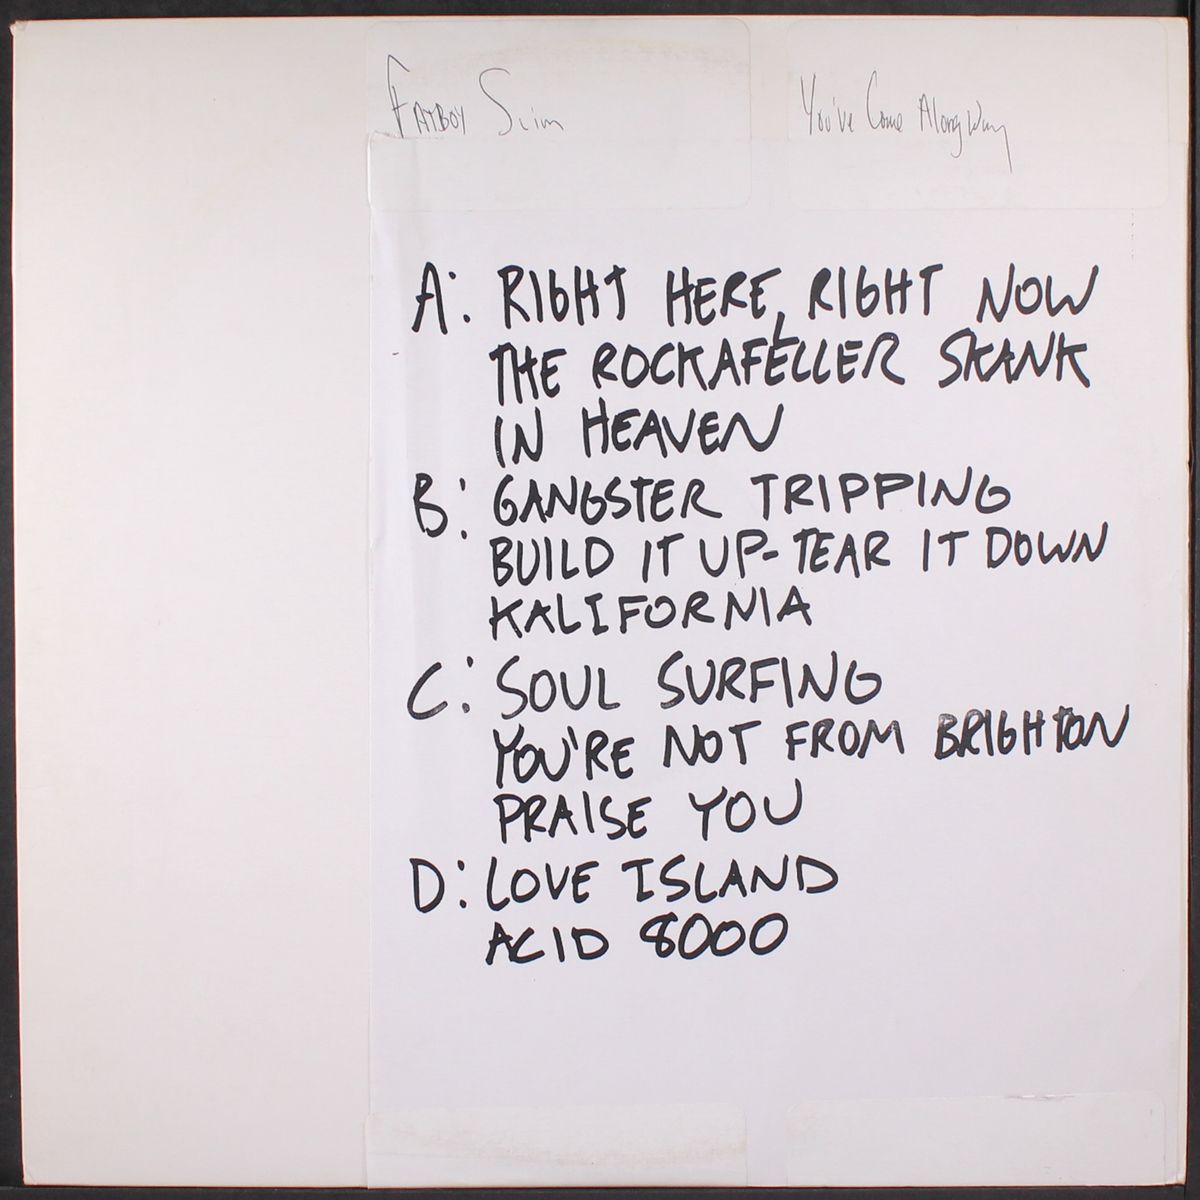 FATBOY SLIM
You've Come Along Way
A: RIGHT HERE, RIGHT NOW
THE ROCKAFELLER SKANK
IN HEAVEN
B: GANGSTER TRIPPING
BUILD IT UP-TEAR IT DOWN
KALIFORNIA
C: SOUL SURFING
YOU'RE NOT FROM BRIGHTON
PRAISE YOU
D: LOVE ISLAND
ACID 8000